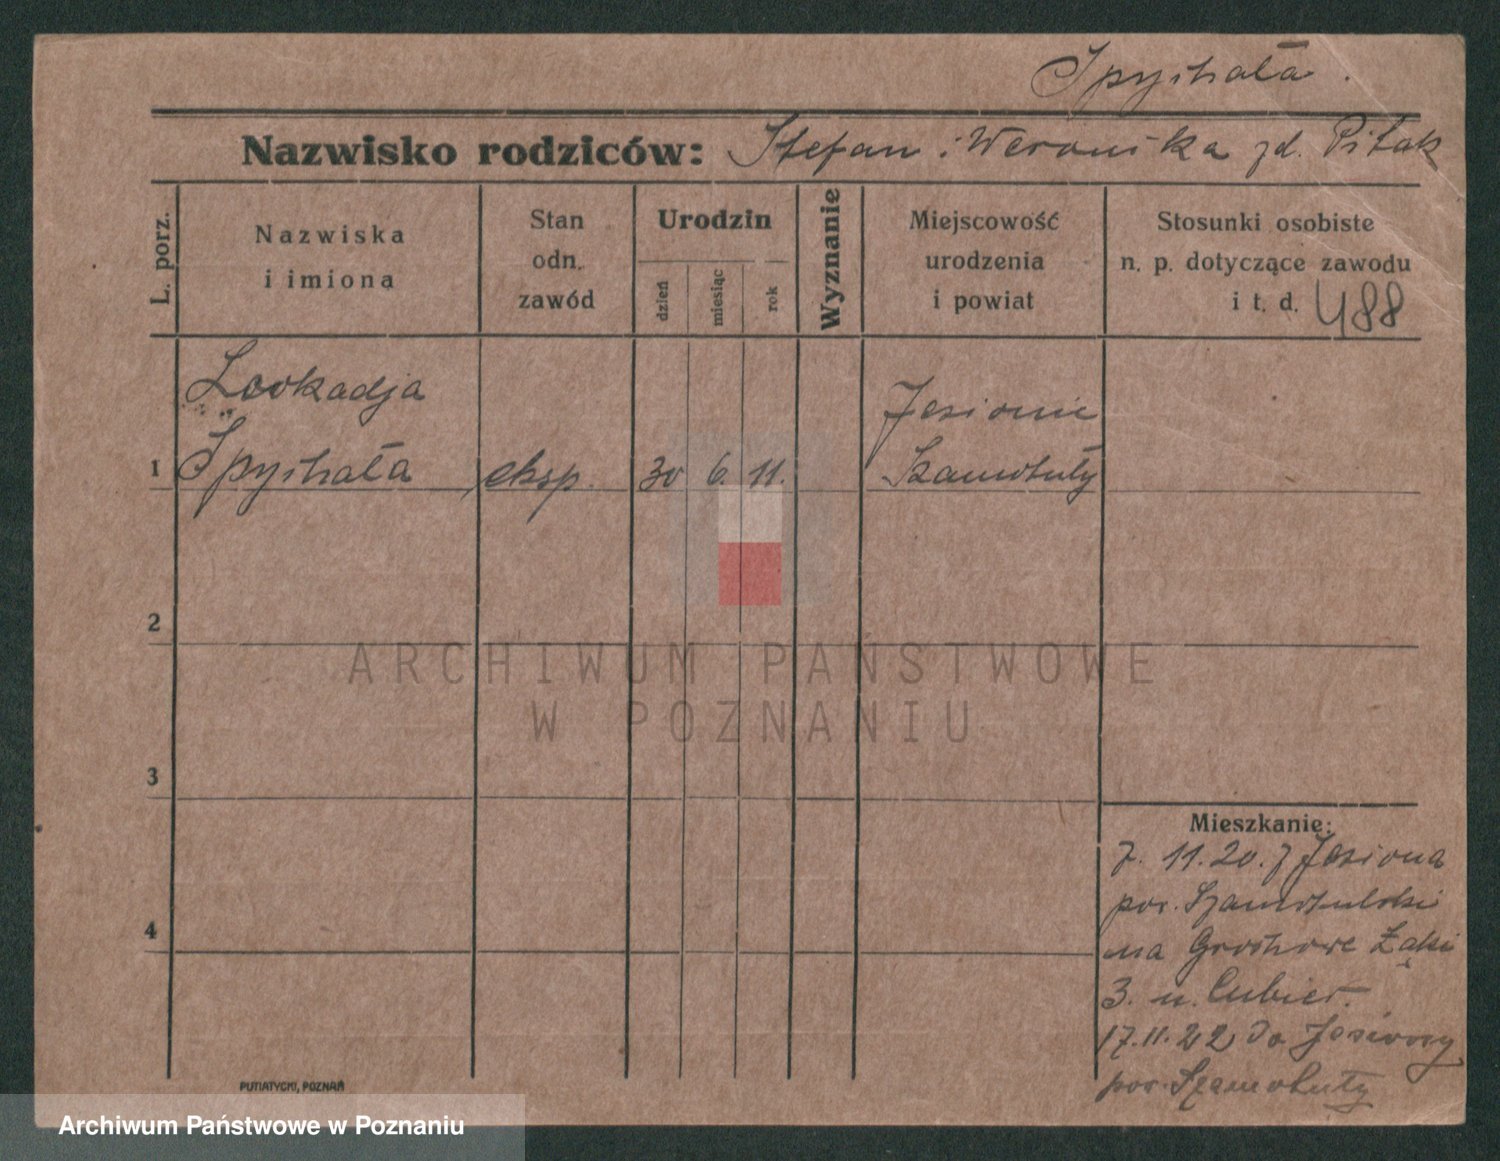 Spychała.
Nazwisko rodziców: Stefan i Weronika zd. Pitak
L. porz.
Nazwiska
i imiona
Stan
odn.
zawód
Urodzin
dzień
miesiąc
rok
Wyznanie
Miejscowość
urodzenia
i powiat
Stosunki osobiste
n. p. dotyczące zawodu
i t. d. 488
Leokadja
Jesionie
1 Spychała eksp. 30 6. 11. Szamotuły
2
ARCHIWUM PAŃSTWOWE
W POZNANIU
3
Mieszkanie:
7. 11. 20. z Jesiona
pow. Szamotulski
4
na Grochowe Łąki
3. u. Cubier.
17.11.22 do Jesiony
pow. Szamotuły
PUTIATYCKI, POZNAŃ
Archiwum Państwowe w Poznaniu